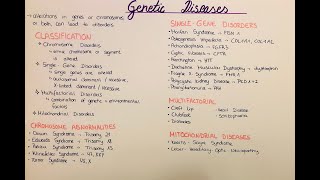 Genetic Diseases
• Alterations in genes or chromosomes or both can lead to disorders
CLASSIFICATION
Chromosome Disorders
entire chromosome or segment is altered
Single-Gene Disorders
single genes are altered
autosomal dominant / recessive
X-linked dominant / recessive
Multifactorial Disorders
combination of genetic + environmental factors
Mitochondrial Disorders
CHROMOSOME ABNORMALITIES
• Down Syndrome - Trisomy 21
• Edwards Syndrome - Trisomy 18
• Patau Syndrome - Trisomy 13
• Klinefelter Syndrome - 47, XXY
• Syndrome - 45, X
SINGLE-GENE DISORDERS
• Marfan Syndrome - FBN 1
• Osteogenesis Imperfecta - COL1A1, COL1A2
• Achondroplasia - FGFR3
• Cystic Fibrosis - CFTR
• Huntington's
• Duchenne Muscular Dystrophy - dystrophin
• Fragile X Syndrome - FMR 1
• Polycystic Kidney Disease - PKD 1+2
• Phenylketonuria - PAH
MULTIFACTORIAL
• Cleft Lip
• Clubfoot
• Diabetes
- Heart Disease
MITOCHONDRIAL DISEASES
• Kearns - Sayre Syndrome
• Leber Hereditary Optic Neuropathy